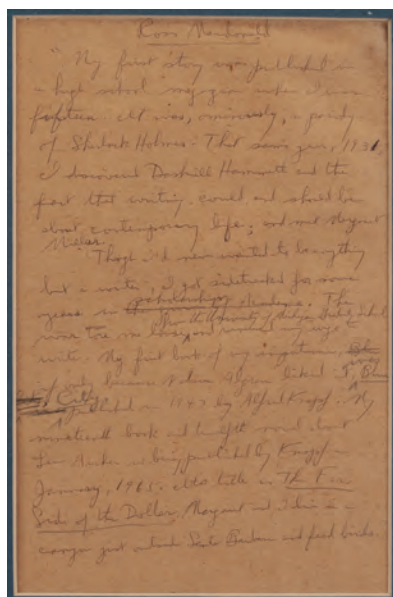 Ross Macdonald
"My first story was published in
a high school magazine when I was
fifteen. It was, ominously, a parody
of Sherlock Holmes. That same year, 1931,
I discovered Dashiell Hammett and the
fact that writing could and should be
about contemporary life; and met Margaret
Millar.
Though I'd never wanted to be anything
but a writer, I got sidetracked for some
years in academe. The
from the University of Michigan
war tore me loose, and my urge to
write. My first book of any
only because Nelson Algren liked it,
City
published in 1947 by Alfred Knopf. My
nineteenth book and twelfth novel about
Lew Archer is being published by Knopf in
January, 1965. Its title is The Far
Side of the Dollar. Margaret and I live in a
canyon just outside Santa Barbara and feed birds.